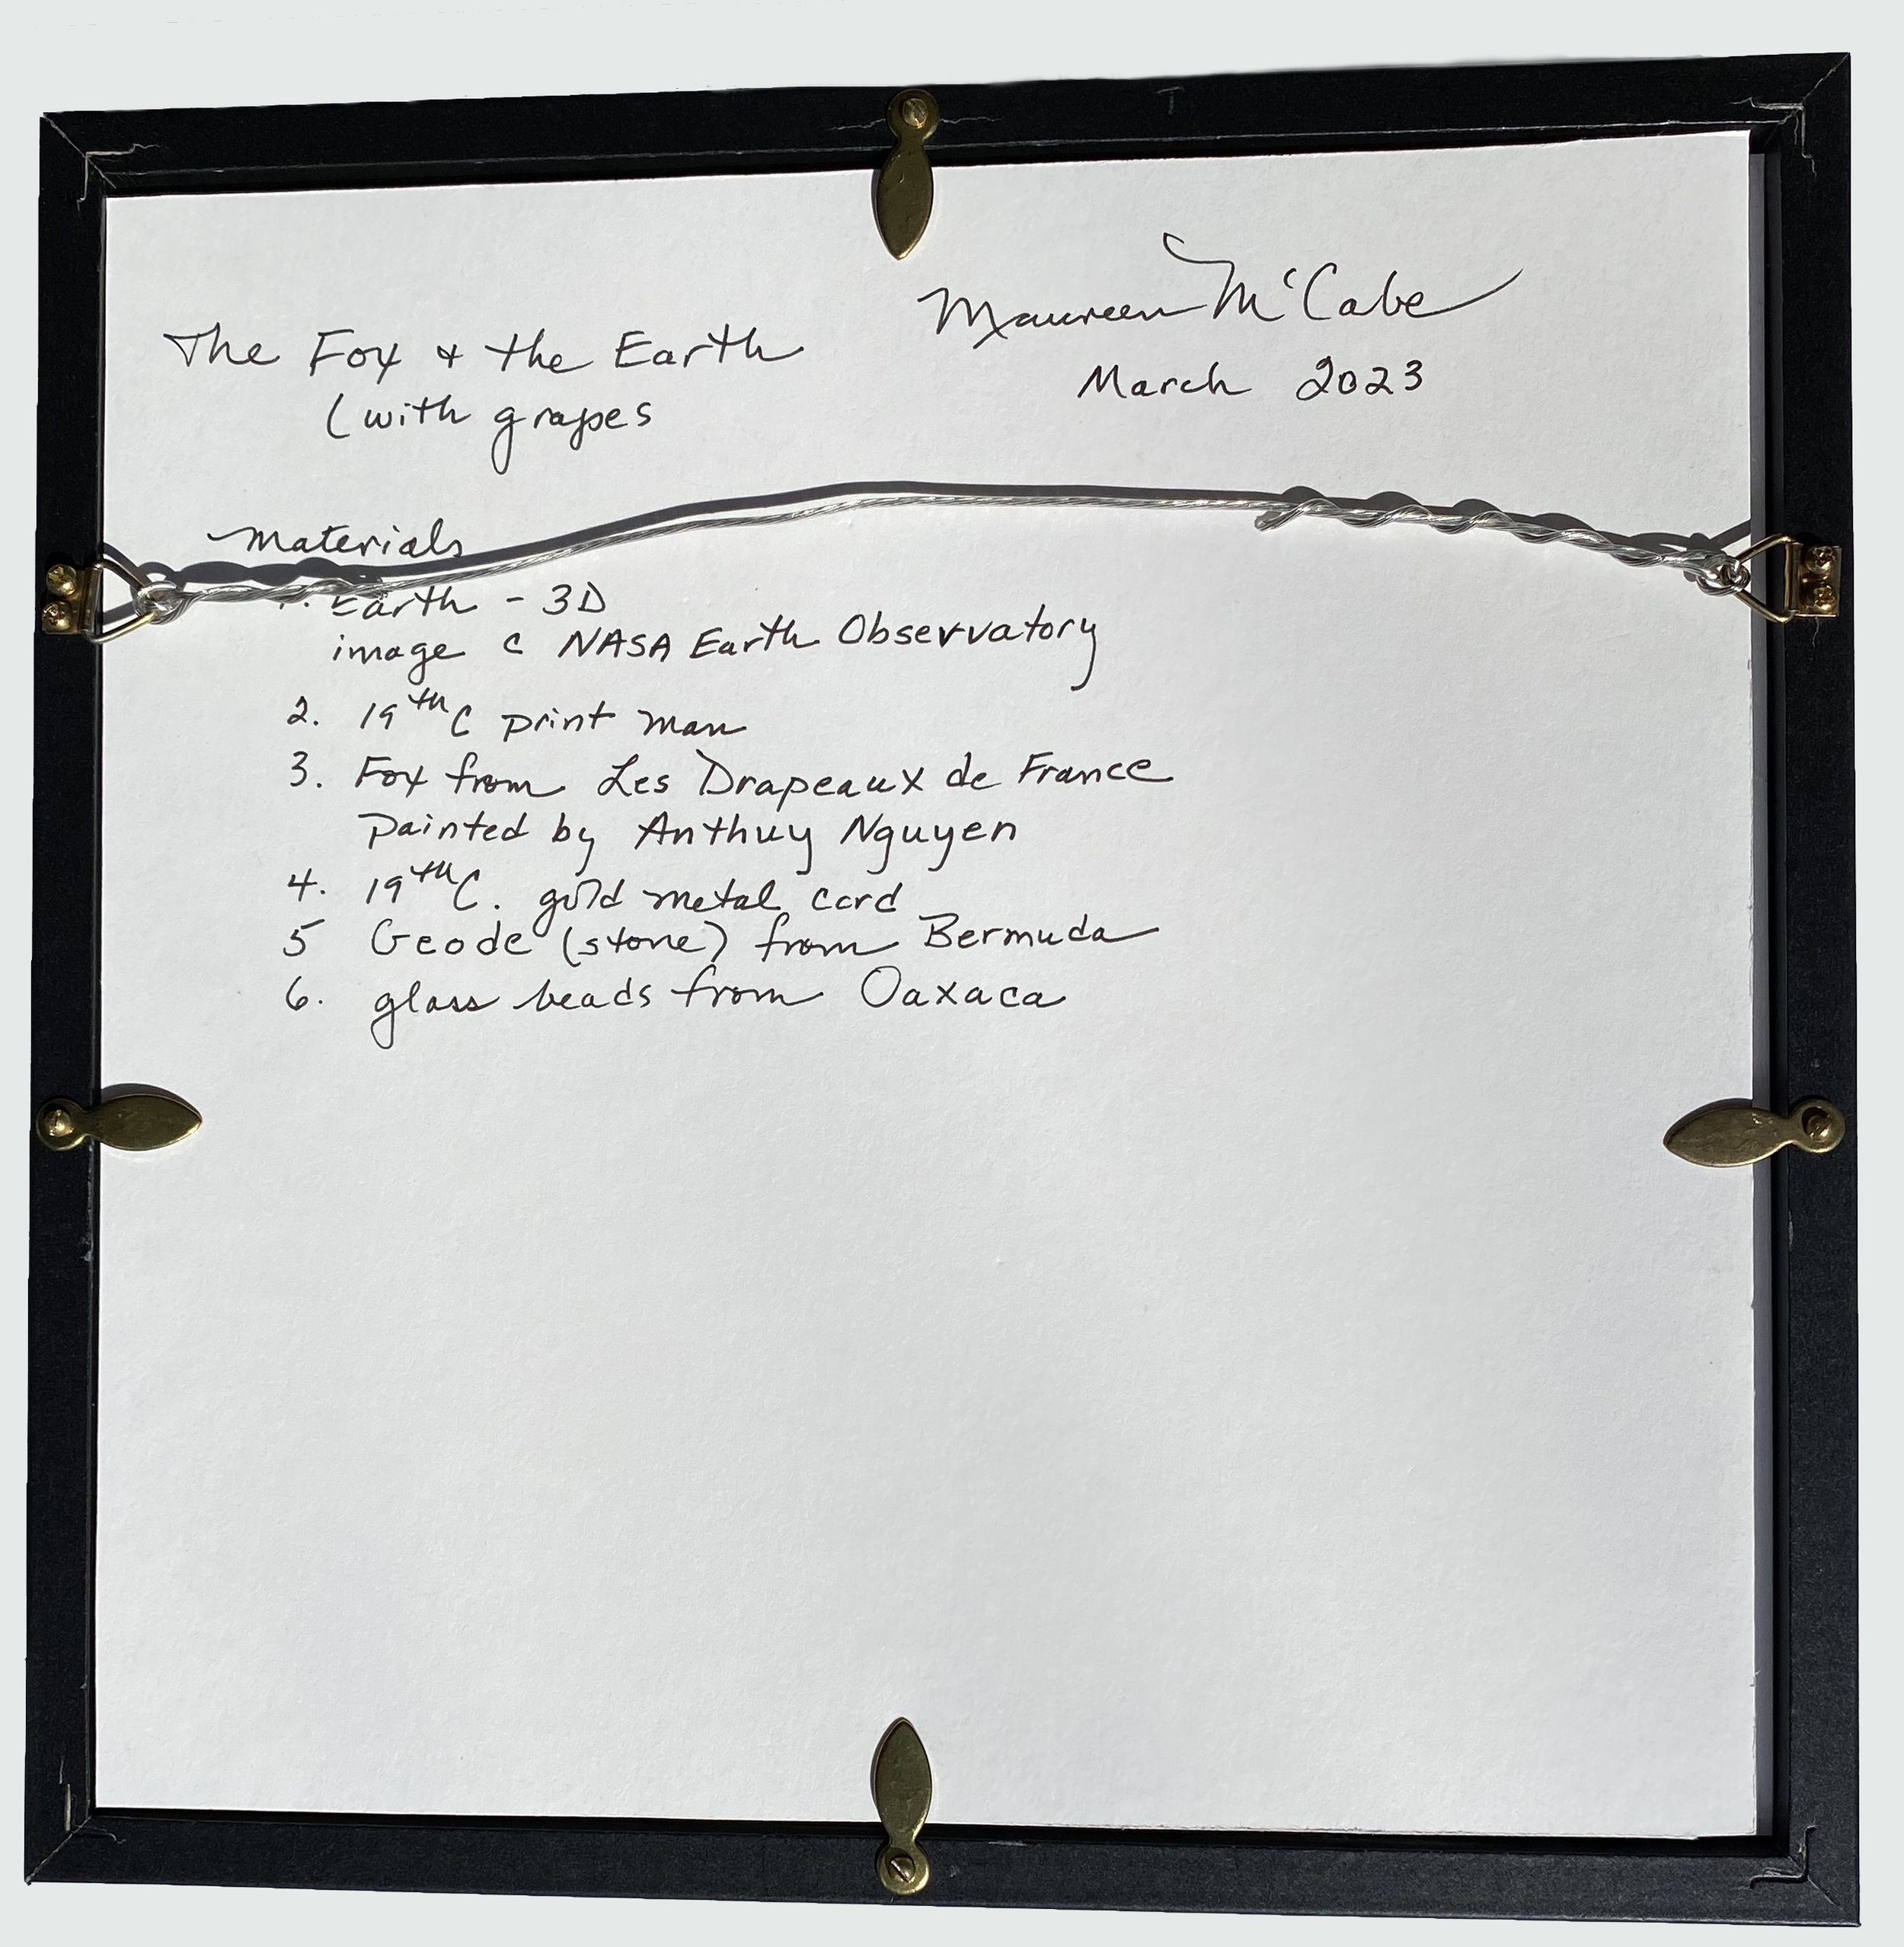 The Fox + the Earth
(with grapes
Maureen McCabe
March 2023
materials
1. Earth - 3D
image c NASA Earth Observatory
2. 19th C print man
3. Fox from Les Drapeaux de France
Painted by Anthuy Nguyen
4. 19th C. gold metal cord
5 Geode (stone) from Bermuda
6. glass beads from Oaxaca